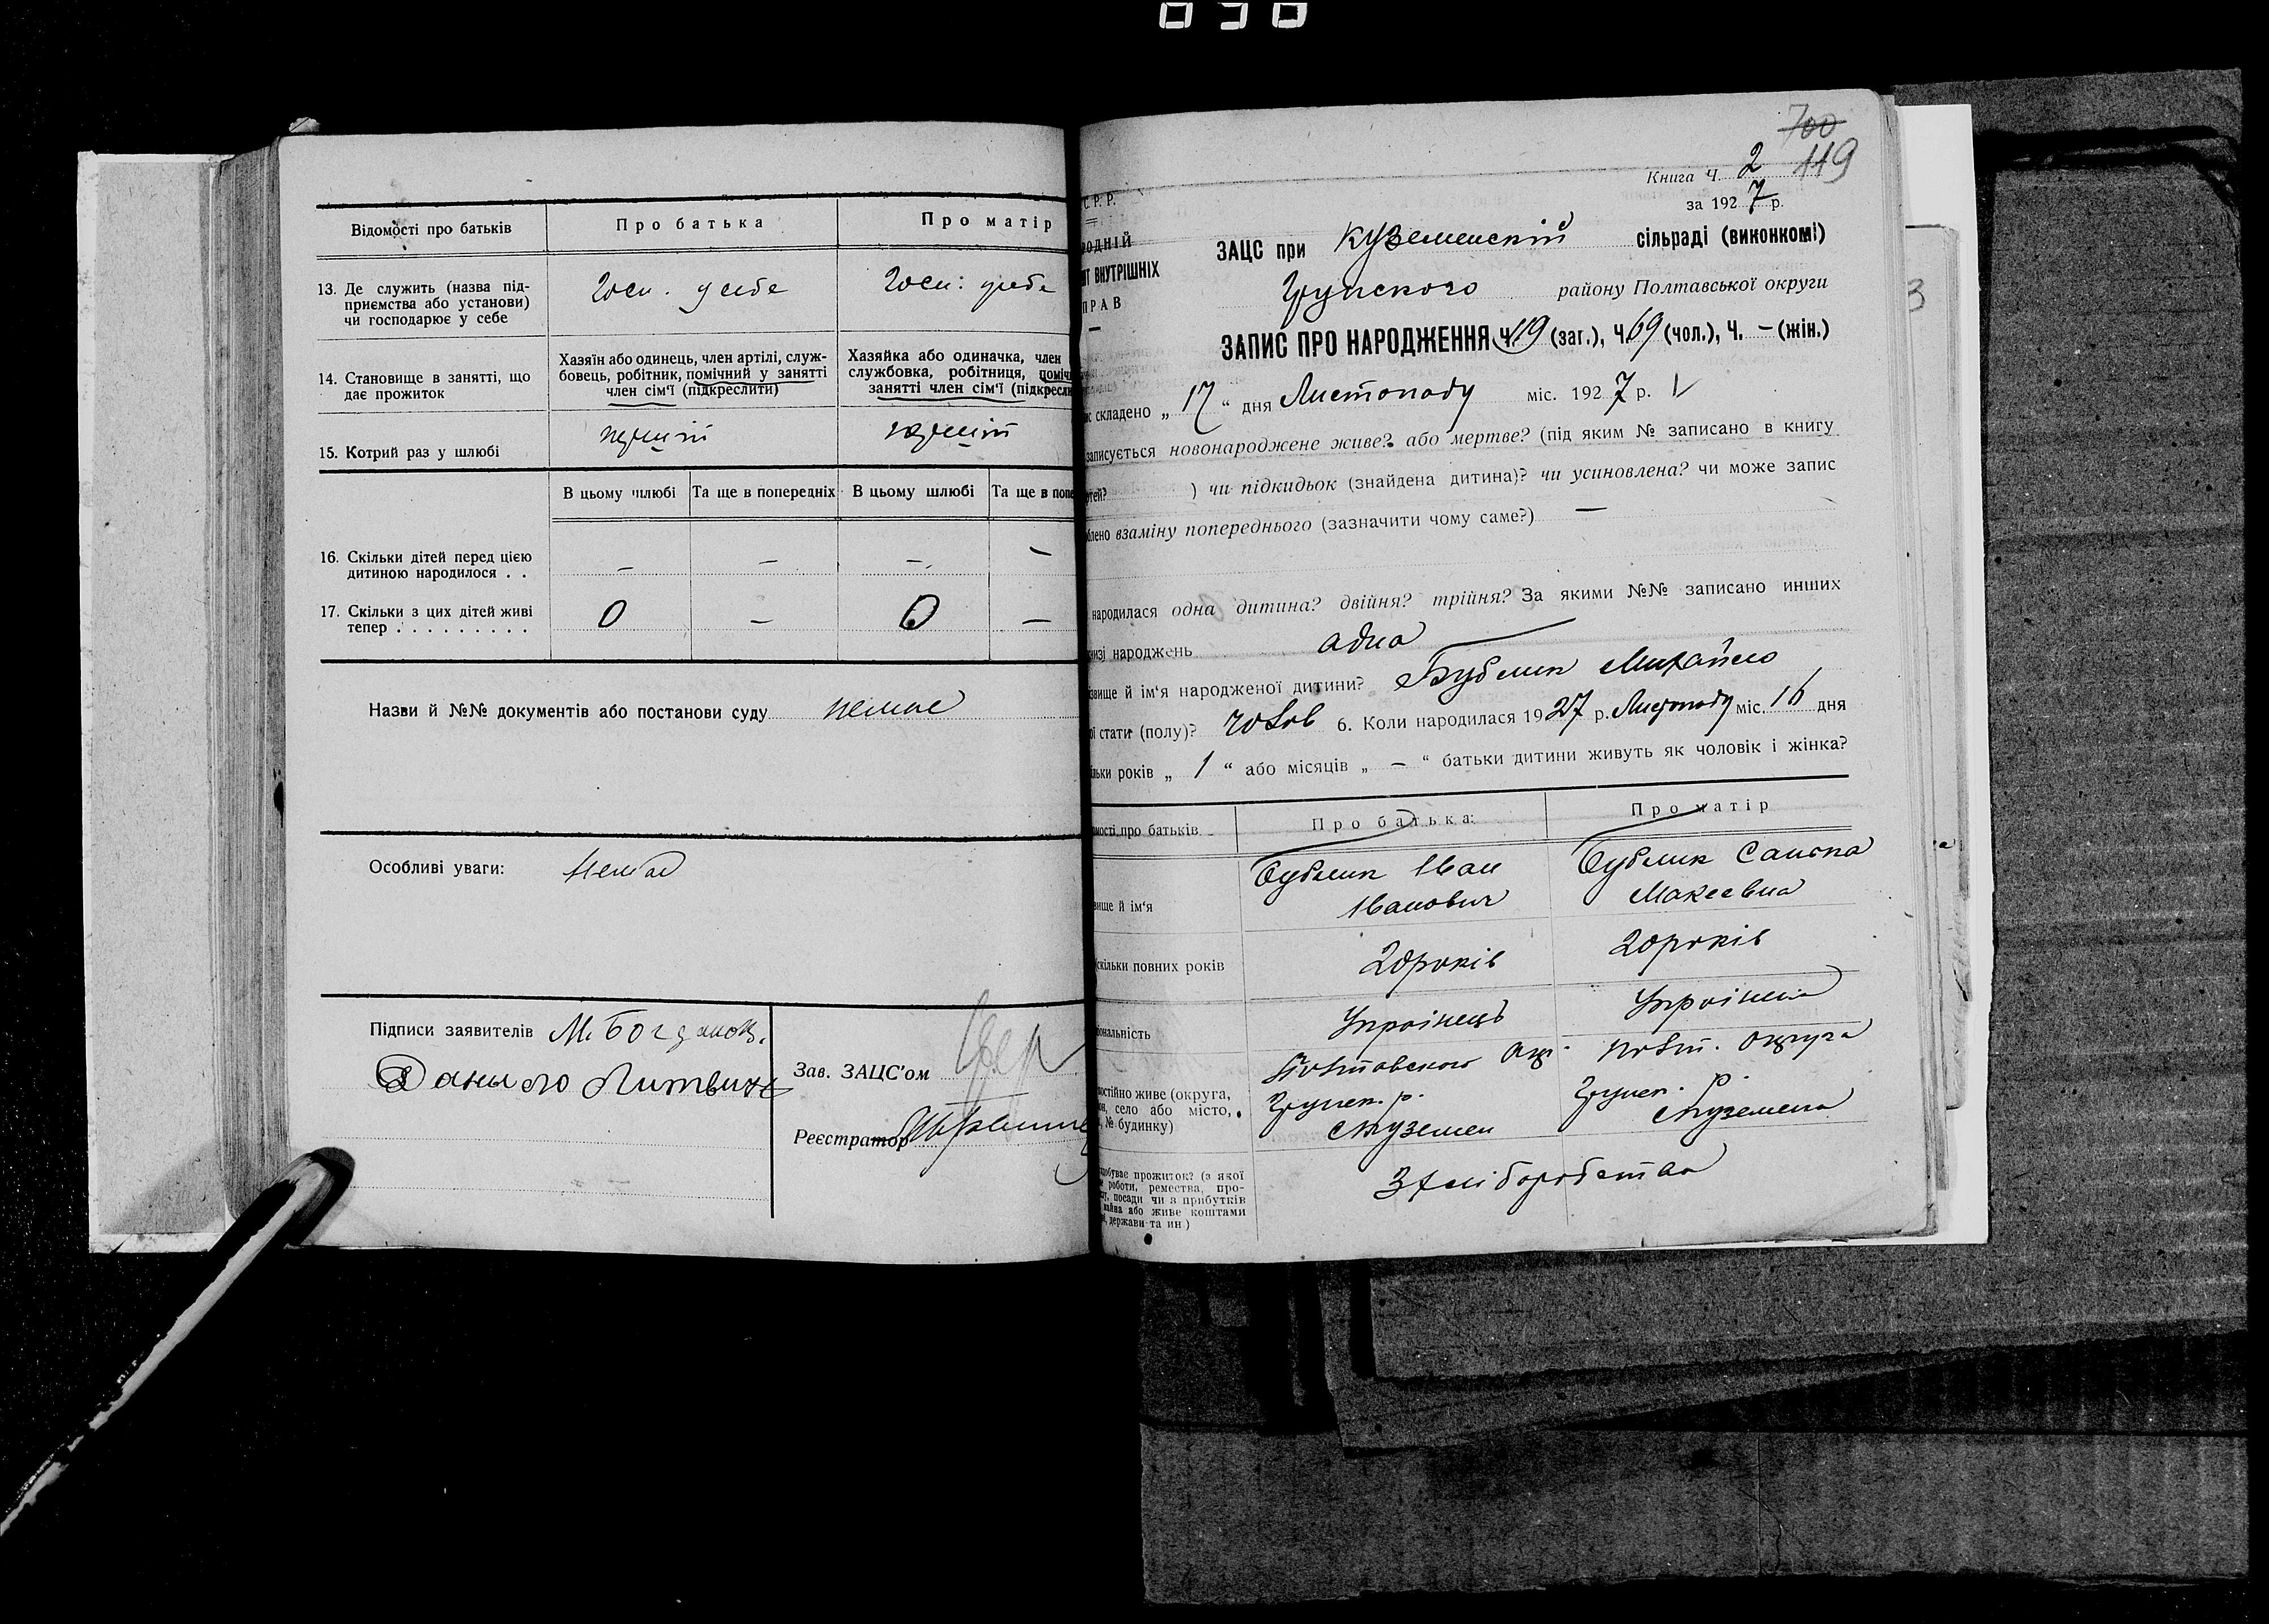 Відомості про батьків
Про батька
Про матір
13. Де служить (назва під-
приємства або установи)
чи господарює у себе
Госп. у себе
Госп. у себе
14. Становище в занятті, що
дає прожиток
Хазяїн або одинець, член артілі, служ-
бовець, робітник, помічний у занятті
член сім'ї (підкреслити)
Хазяйка або одиначка, член
службовка, робітниця, поміч
занятті член сім'ї (підкресли
15. Котрий раз у шлюбі
перший
перший
В цьому шлюбі
Та ще в попередніх
В цьому шлюбі
Та ще в попе
16. Скільки дітей перед цією
дитиною народилося . .
–
–
–
–
17. Скільки з цих дітей живі
тепер . . . . . . . . .
0
–
0
–
Назви й №№ документів або постанови суду немає
Особливі уваги: немає
Підписи заявителів М. Богданов.
Данило Литвин
Зав. ЗАЦС'ом
Реєстратор
700
119
Книга Ч. 2
за 1927 р.
С. Р. Р.
РОДНІЙ
ВНУТРІШНІХ
ПРАВ
ЗАЦС при Куземенскій сільраді (виконкомі)
Грунского району Полтавської округи
ЗАПИС ПРО НАРОДЖЕННЯ Ч. 119 (заг.), Ч. 69 (чол.), Ч. – (жін.)
ис складено „ 17 “ дня Листопаду міс. 1927 р. V
записується новонароджене живе? або мертве? (під яким № записано в книгу
ртей? ) чи підкидьок (знайдена дитина)? чи усиновлена? чи може запис
блено взаміну попереднього (зазначити чому саме?) –
народилася одна дитина? двійня? трійня? За якими №№ записано инших
низі народжень одна
звище й ім'я народженої дитини? Бублик Михайло
ої стати (полу)? чолов 6. Коли народилася 1927 р. Листопаду міс. 16 дня
льки років „ 1 “ або місяців „ – “ батьки дитини живуть як чоловік і жінка?
мості про батьків
Про батька:
Про матір
вище й ім'я
Бублик Іван
Іванович
Бублик Санька
Макеевна
скільки повних років
20 років
20 років
іональність
Украінець
Украінка
постійно живе (округа,
он, село або місто,
, № будинку)
Полтавского Окр.
Грунск. р.
с Куземен
Полт. Округа
Грунск. р.
с Куземена
добуває прожиток? (з якої
роботи, ремества, про-
посади чи з прибутків
майна або живе коштами
, держави та ин)
З хліборобства